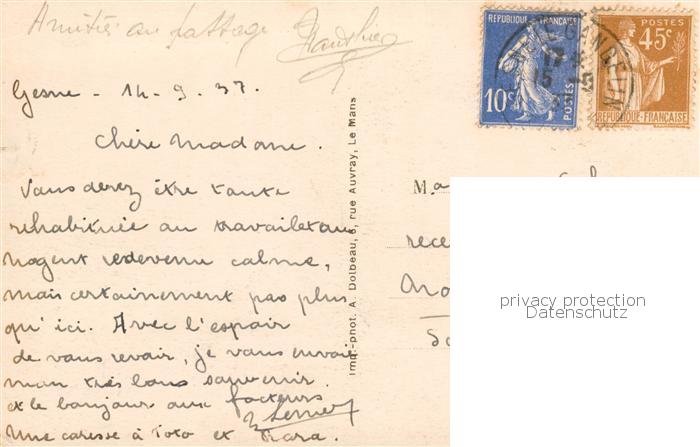 Amitiés au passage
Gesne - 14-9-37.
Chère Madame.
Vous devez être toute
rehabituée au travail et au
nogent redevenu calme,
mais certainement pas plus
qu'ici. Avec l'espoir
de vous revoir, je vous envoie
mon très bons souvenir.
et le bonjour aux facteurs
Une caresse à Toto et Rara.
Imp.-phot. A. Dolbeau, rue Auvray, Le Mans
REPUBLIQUE FRANÇAISE
10c POSTES
POSTES
45c
REPUBLIQUE-FRANÇAISE
15
M
rece
privacy protection
Datenschutz